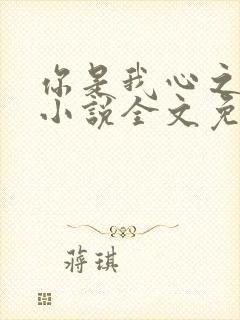 你是我心之
小说全文免
蒋琪